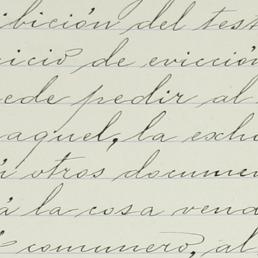 ibición del test
icio de evicción
ede pedir al
aquel, la exhi
n otros documen
á la cosa vend
comunero, al